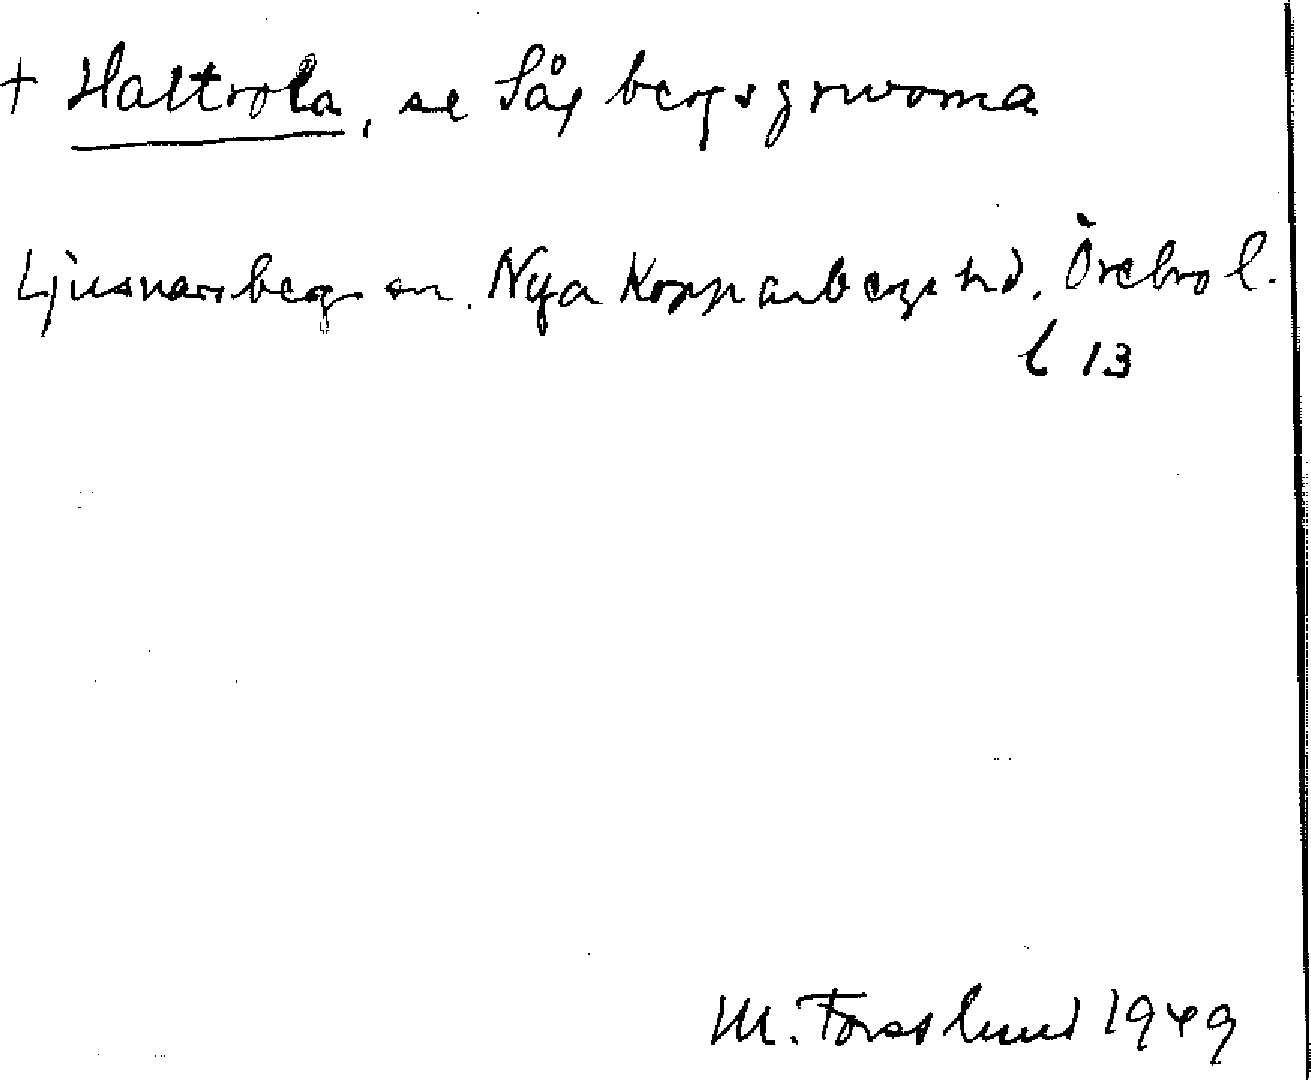 + Haltrola, se Såg bergsgruvorna
Ljusnarsbergs sn. Nya Kopparbergs hd. Örebro l.
l 13
M. Forsslund 1949